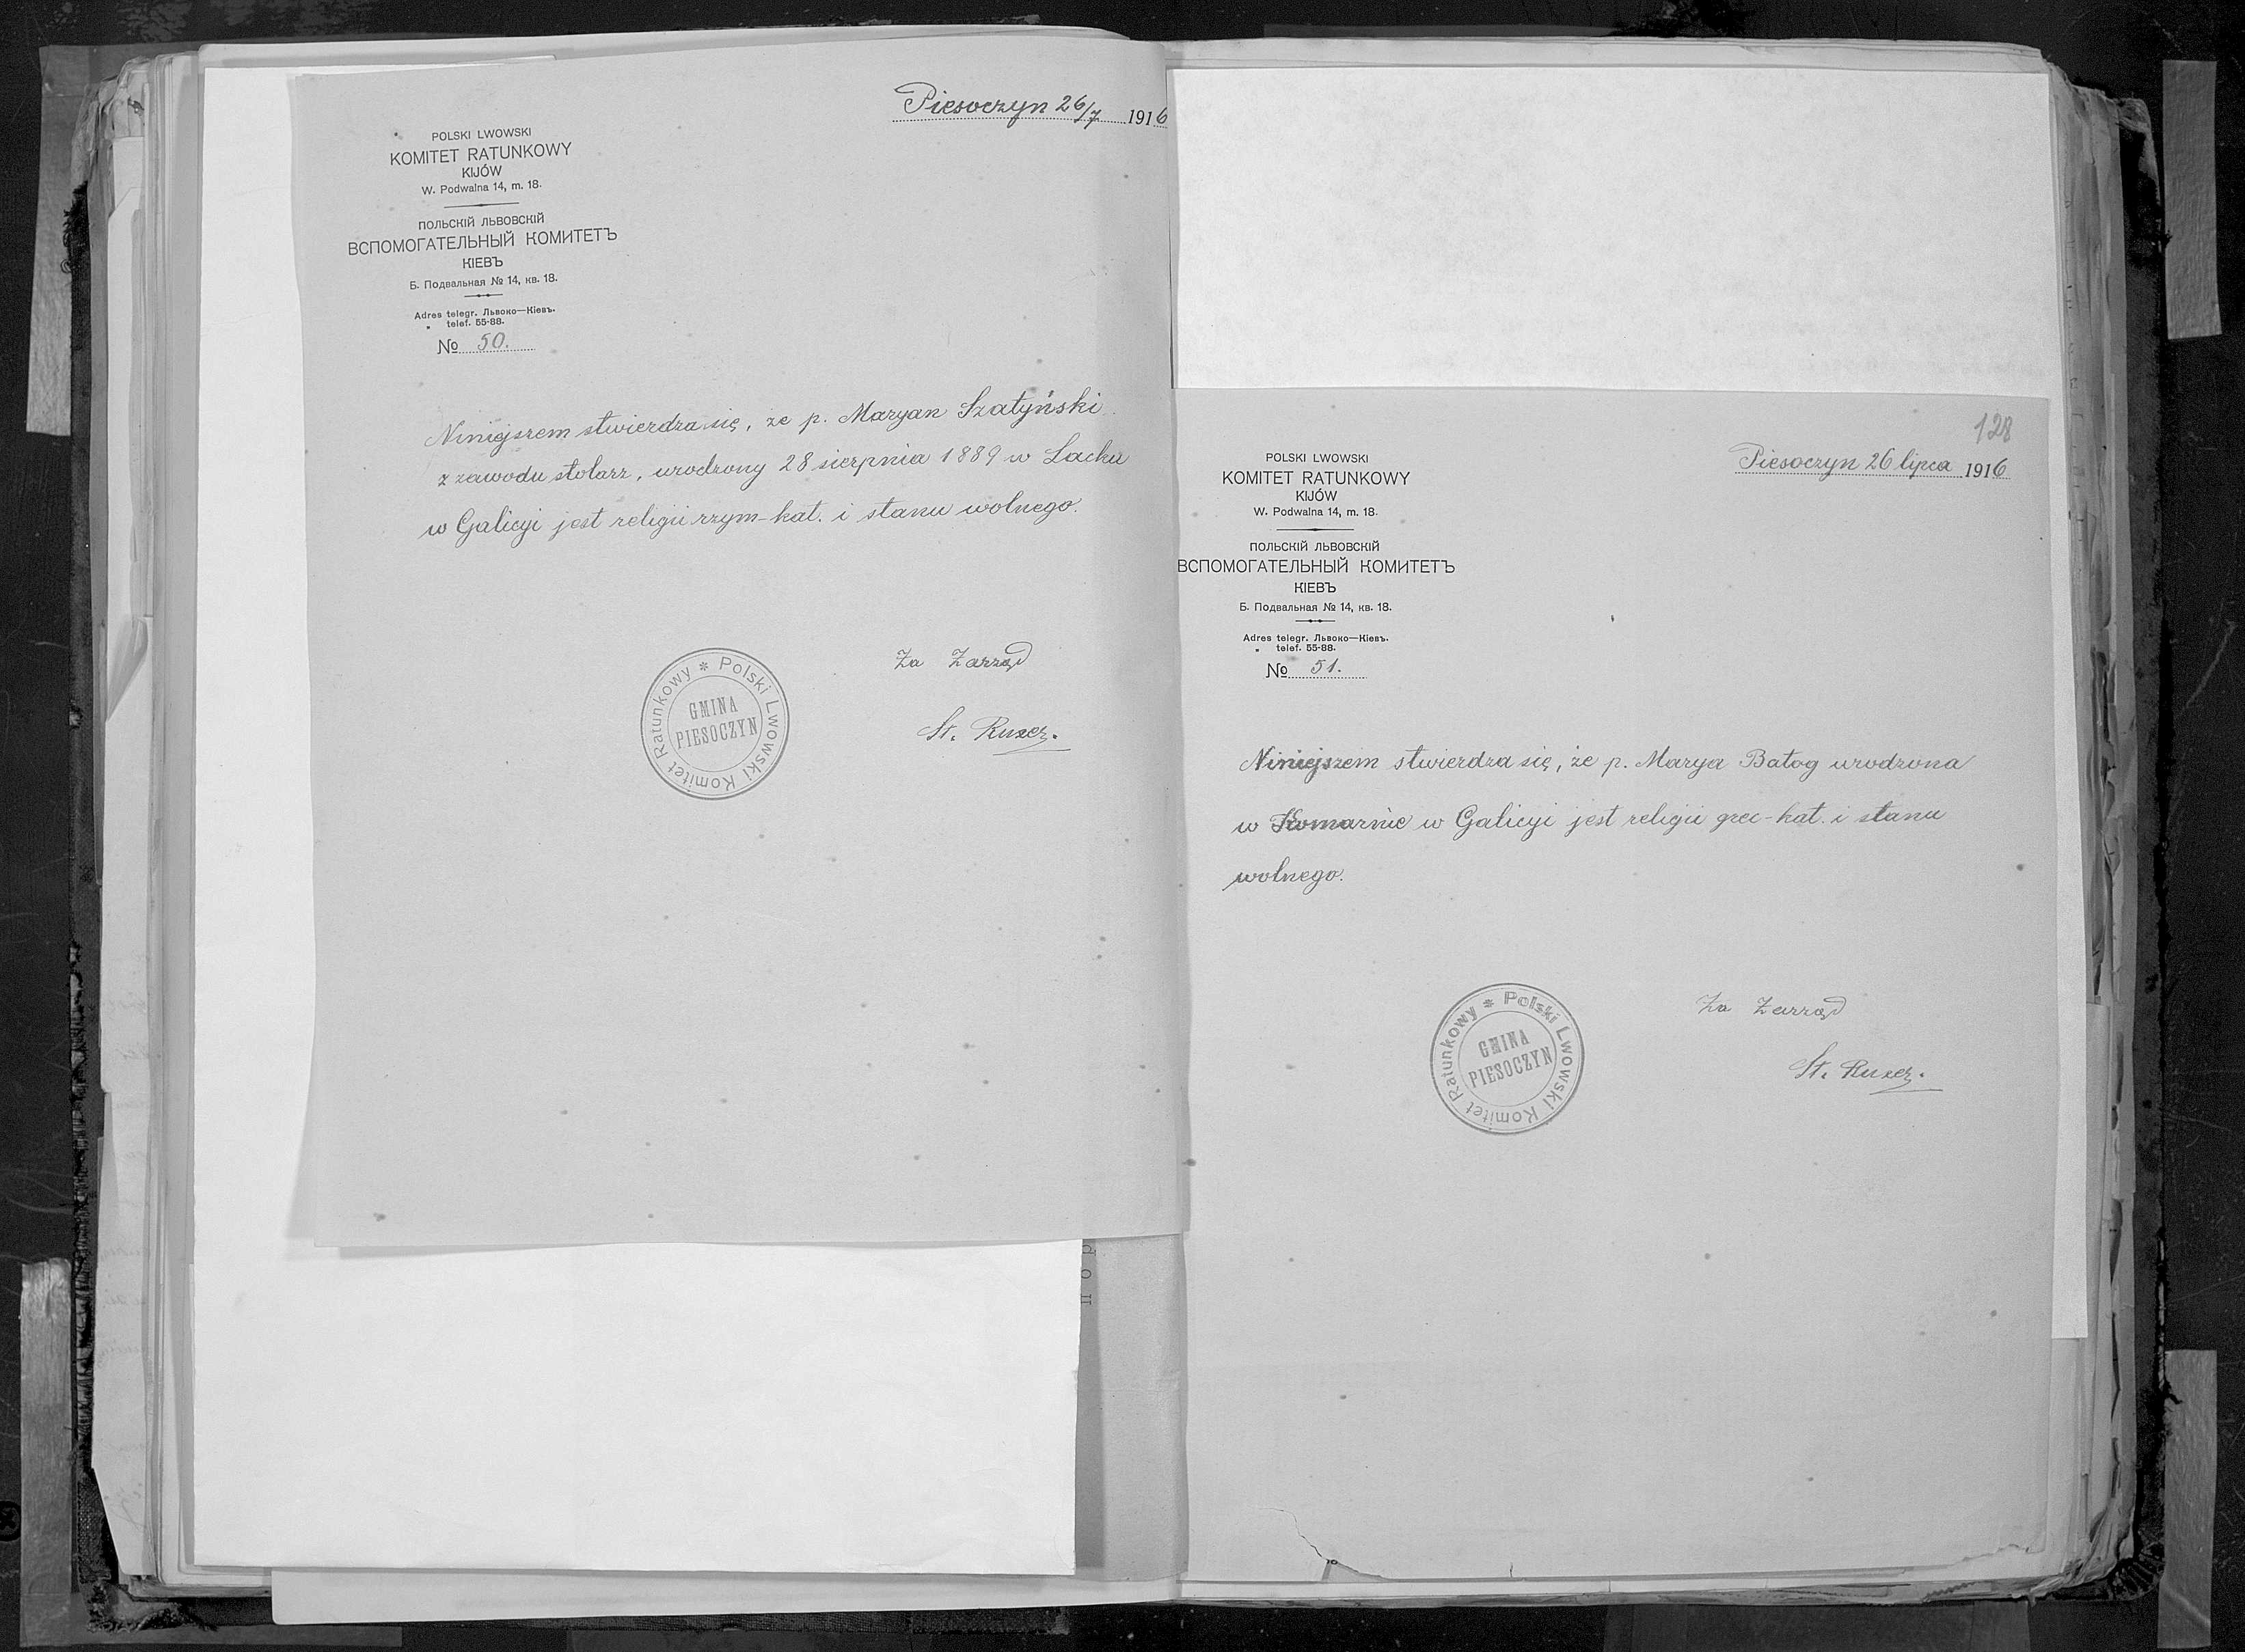 Piesoczyn 26/7 1916
POLSKI LWOWSKI
KOMITET RATUNKOWY
KIJÓW
W. Podwalna 14, m. 18.
ПОЛЬСКІЙ ЛЬВОВСКІЙ
ВСПОМОГАТЕЛЬНЫЙ КОМИТЕТЪ
КІЕВЪ
Б. Подвальная № 14, кв. 18.
Adres telegr. Львоко—Кіевъ.
„ telef. 55-88.
№ 50.
Niniejszem stwierdza się, że p. Maryan Szatyński
z zawodu stolarz, urodzony 28 sierpnia 1889 w Lacku
w Galicyi jest religii rzym-kat. i stanu wolnego.
Za Zarząd
St. Ruxer.
Polski Lwowski Komitet Ratunkowy *
GMINA
PIESOCZYN
128
Piesoczyn 26 lipca 1916
POLSKI LWOWSKI
KOMITET RATUNKOWY
KIJÓW
W. Podwalna 14, m. 18.
ПОЛЬСКІЙ ЛЬВОВСКІЙ
ВСПОМОГАТЕЛЬНЫЙ КОМИТЕТЪ
КІЕВЪ
Б. Подвальная № 14, кв. 18.
Adres telegr. Львоко—Кіевъ.
„ telef. 55-88.
№ 51.
Niniejszem stwierdza się, że p. Marya Batog urodzona
w Komarnie w Galicyi jest religii grec-kat. i stanu
wolnego.
Za Zarząd
St. Ruxer.
Polski Lwowski Komitet Ratunkowy *
GMINA
PIESOCZYN